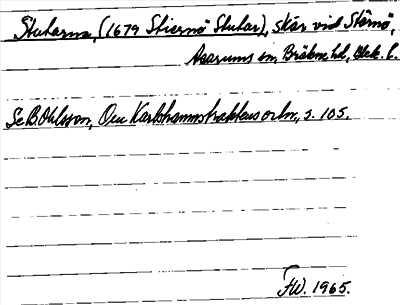 Stutarna, (1679 Stiernö Stutar), skär vid Stärnö,
Asarums sn, Bräkne hd, Blek. l.
Se B Ohlsson, Om Karlshamnstraktens ortn, s. 105.
FW. 1965.